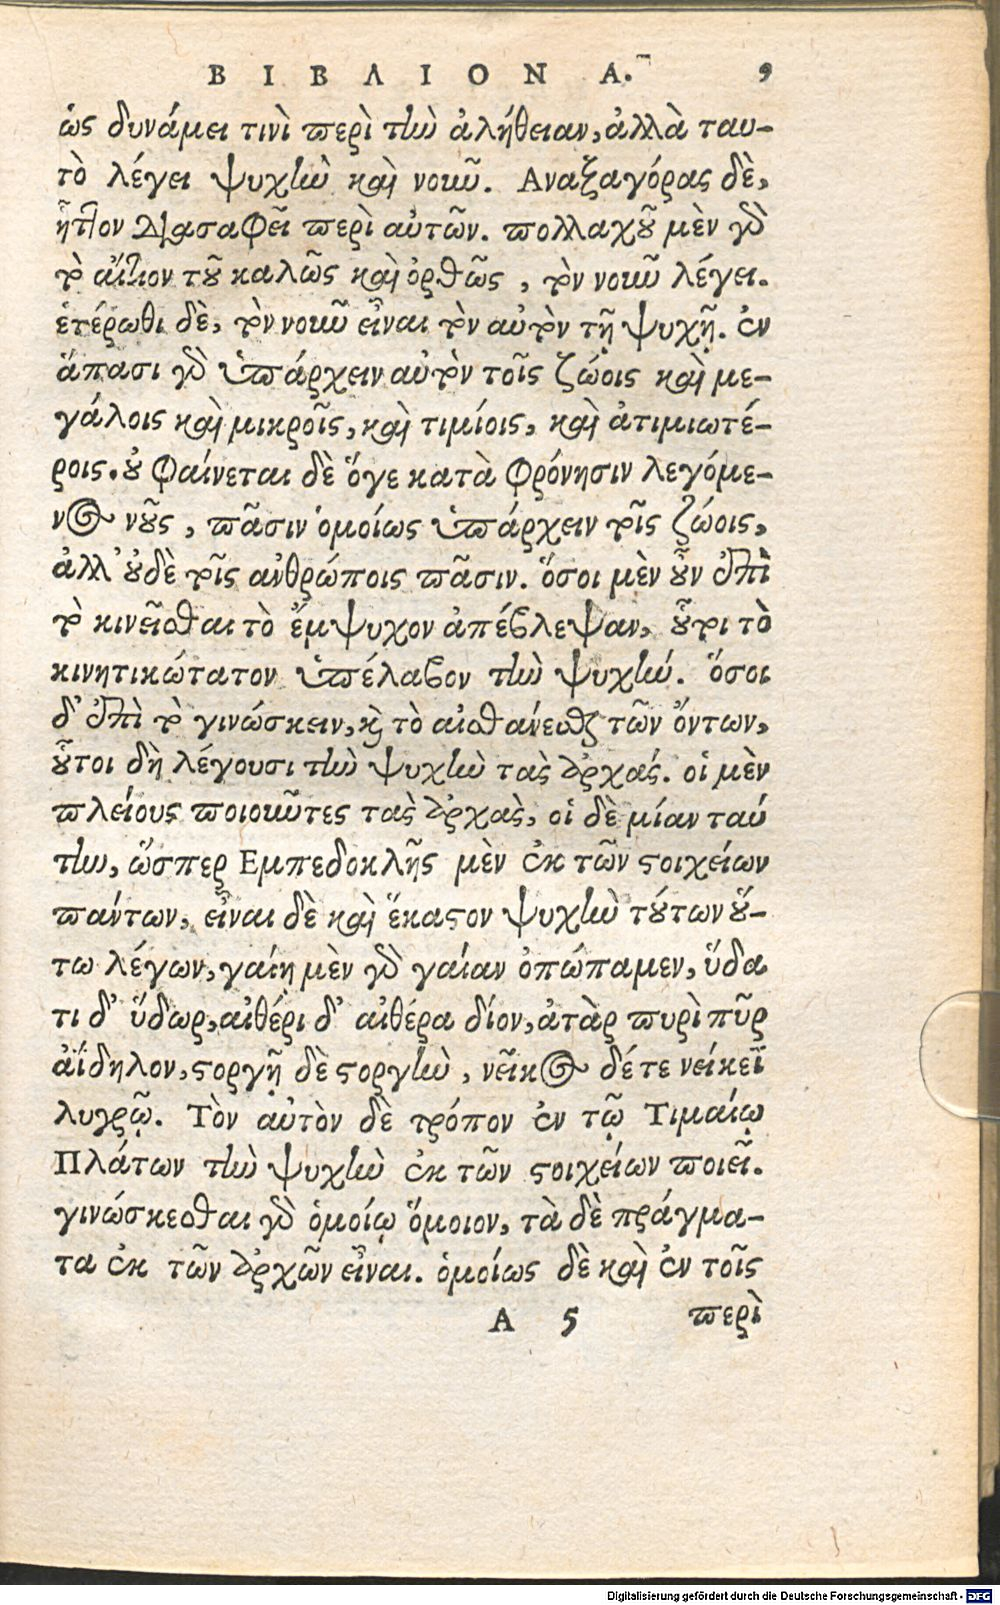 ΒΙΒΛΙΟΝ Α. 9
ὡς δυνάμει τινὶ περὶ τὴν ἀλήθειαν, ἀλλὰ ταυ-
τὸ λέγει ψυχὴν καὶ νοῦν. Αναξαγόρας δὲ,
ἧττον διασαφεῖ περὶ αὐτῶν. πολλαχοῦ μὲν γὰρ
τὸ αἴτιον τοῦ καλῶς καὶ ὀρθῶς, τὸν νοῦν λέγει.
ἑτέρωθι δὲ, τὸν νοῦν εἶναι τὸν αὐτὸν τῇ ψυχῇ. ἐν
ἅπασι γὰρ ὑπάρχειν αὐτὸν τοῖς ζώοις καὶ με-
γάλοις καὶ μικροῖς, καὶ τιμίοις, καὶ ἀτιμιωτέ-
ροις. οὐ φαίνεται δὲ ὅγε κατὰ φρόνησιν λεγόμε-
νος νοῦς, πᾶσιν ὁμοίως ὑπάρχειν τοῖς ζώοις,
ἀλλ' οὐδὲ τοῖς ἀνθρώποις πᾶσιν. ὅσοι μὲν οὖν ἐπὶ
τὸ κινεῖσθαι τὸ ἔμψυχον ἀπέβλεψαν, οὗτοι τὸ
κινητικώτατον ὑπέλαβον τὴν ψυχήν. ὅσοι
δ' ἐπὶ τὸ γινώσκειν, καὶ τὸ αἰσθάνεσθαι τῶν ὄντων,
οὗτοι δὴ λέγουσι τὴν ψυχὴν τὰς ἀρχάς. οἱ μὲν
πλείους ποιοῦντες τὰς ἀρχὰς, οἱ δὲ μίαν ταύ
την, ὥσπερ Εμπεδοκλῆς μὲν ἐκ τῶν στοιχείων
πάντων, εἶναι δὲ καὶ ἕκαστον ψυχὴν τούτων οὕ-
τω λέγων, γαίῃ μὲν γὰρ γαίαν ὀπώπαμεν, ὕδα
τι δ' ὕδωρ, αἰθέρι δ' αἰθέρα δίον, ἀτὰρ πυρὶ πῦρ
ἀΐδηλον, στοργῇ δὲ στοργὴν, νεῖκος δέ τε νείκεϊ
λυγρῷ. Τὸν αὐτὸν δὲ τρόπον ἐν τῷ Τιμαίῳ
Πλάτων τὴν ψυχὴν ἐκ τῶν στοιχείων ποιεῖ.
γινώσκεσθαι γὰρ ὁμοίῳ ὅμοιον, τὰ δὲ πράγμα-
τα ἐκ τῶν ἀρχῶν εἶναι. ὁμοίως δὲ καὶ ἐν τοῖς
Α 5 περὶ
Digitalisierung gefördert durch die Deutsche Forschungsgemeinschaft - DFG